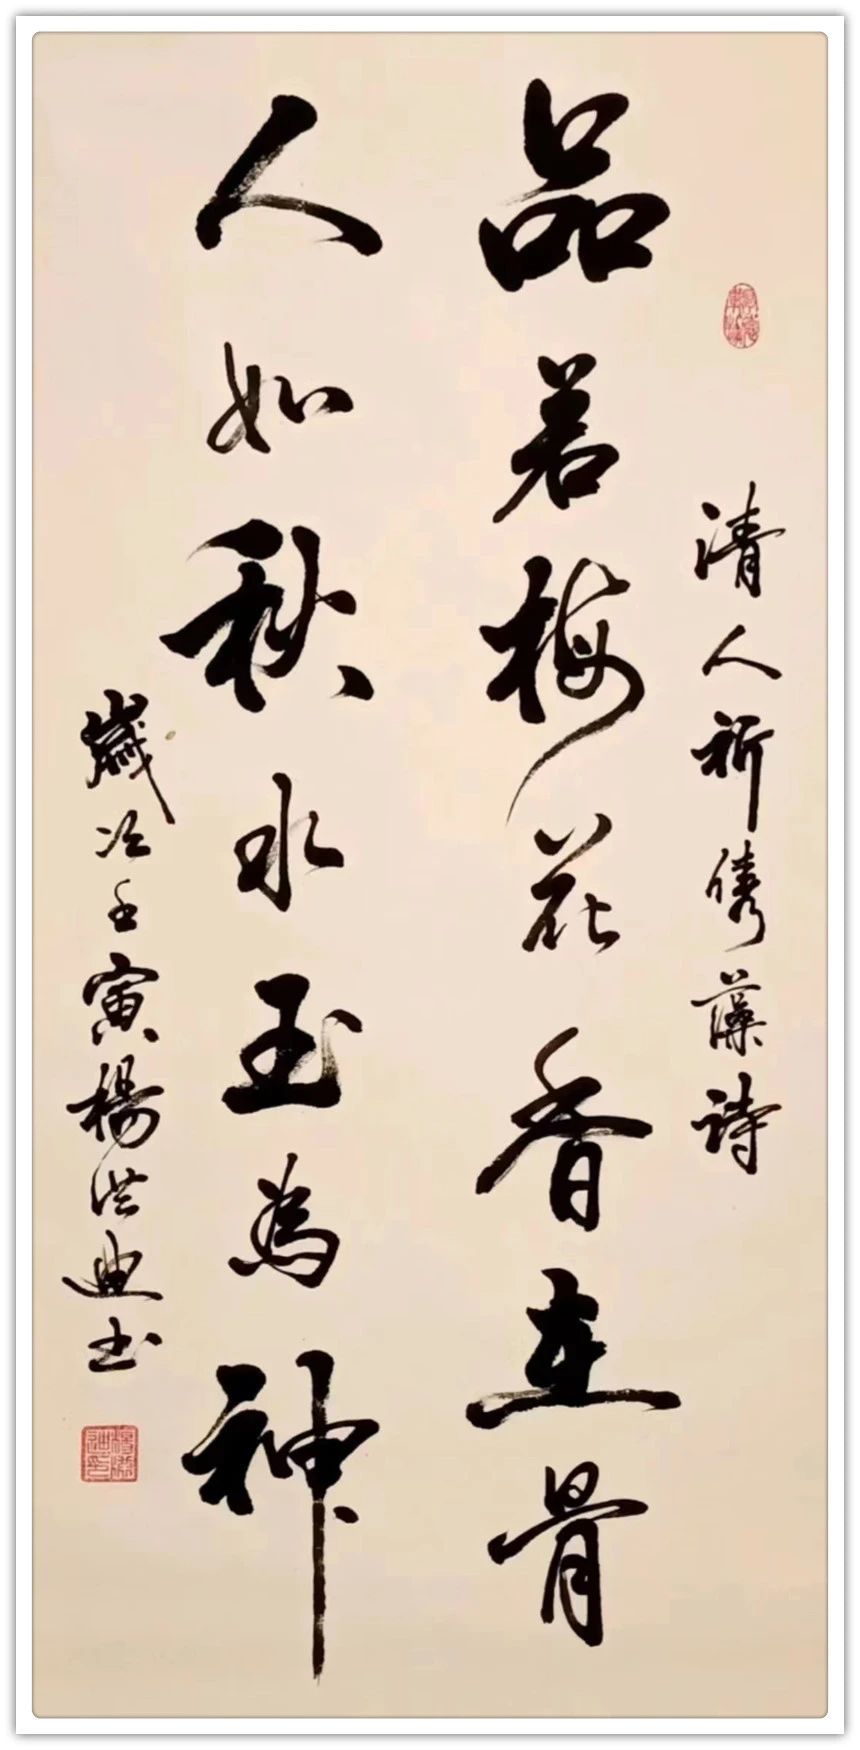 清人祈儁藻诗
品若梅花香在骨
人如秋水玉為神
歲次壬寅楊洪迪书